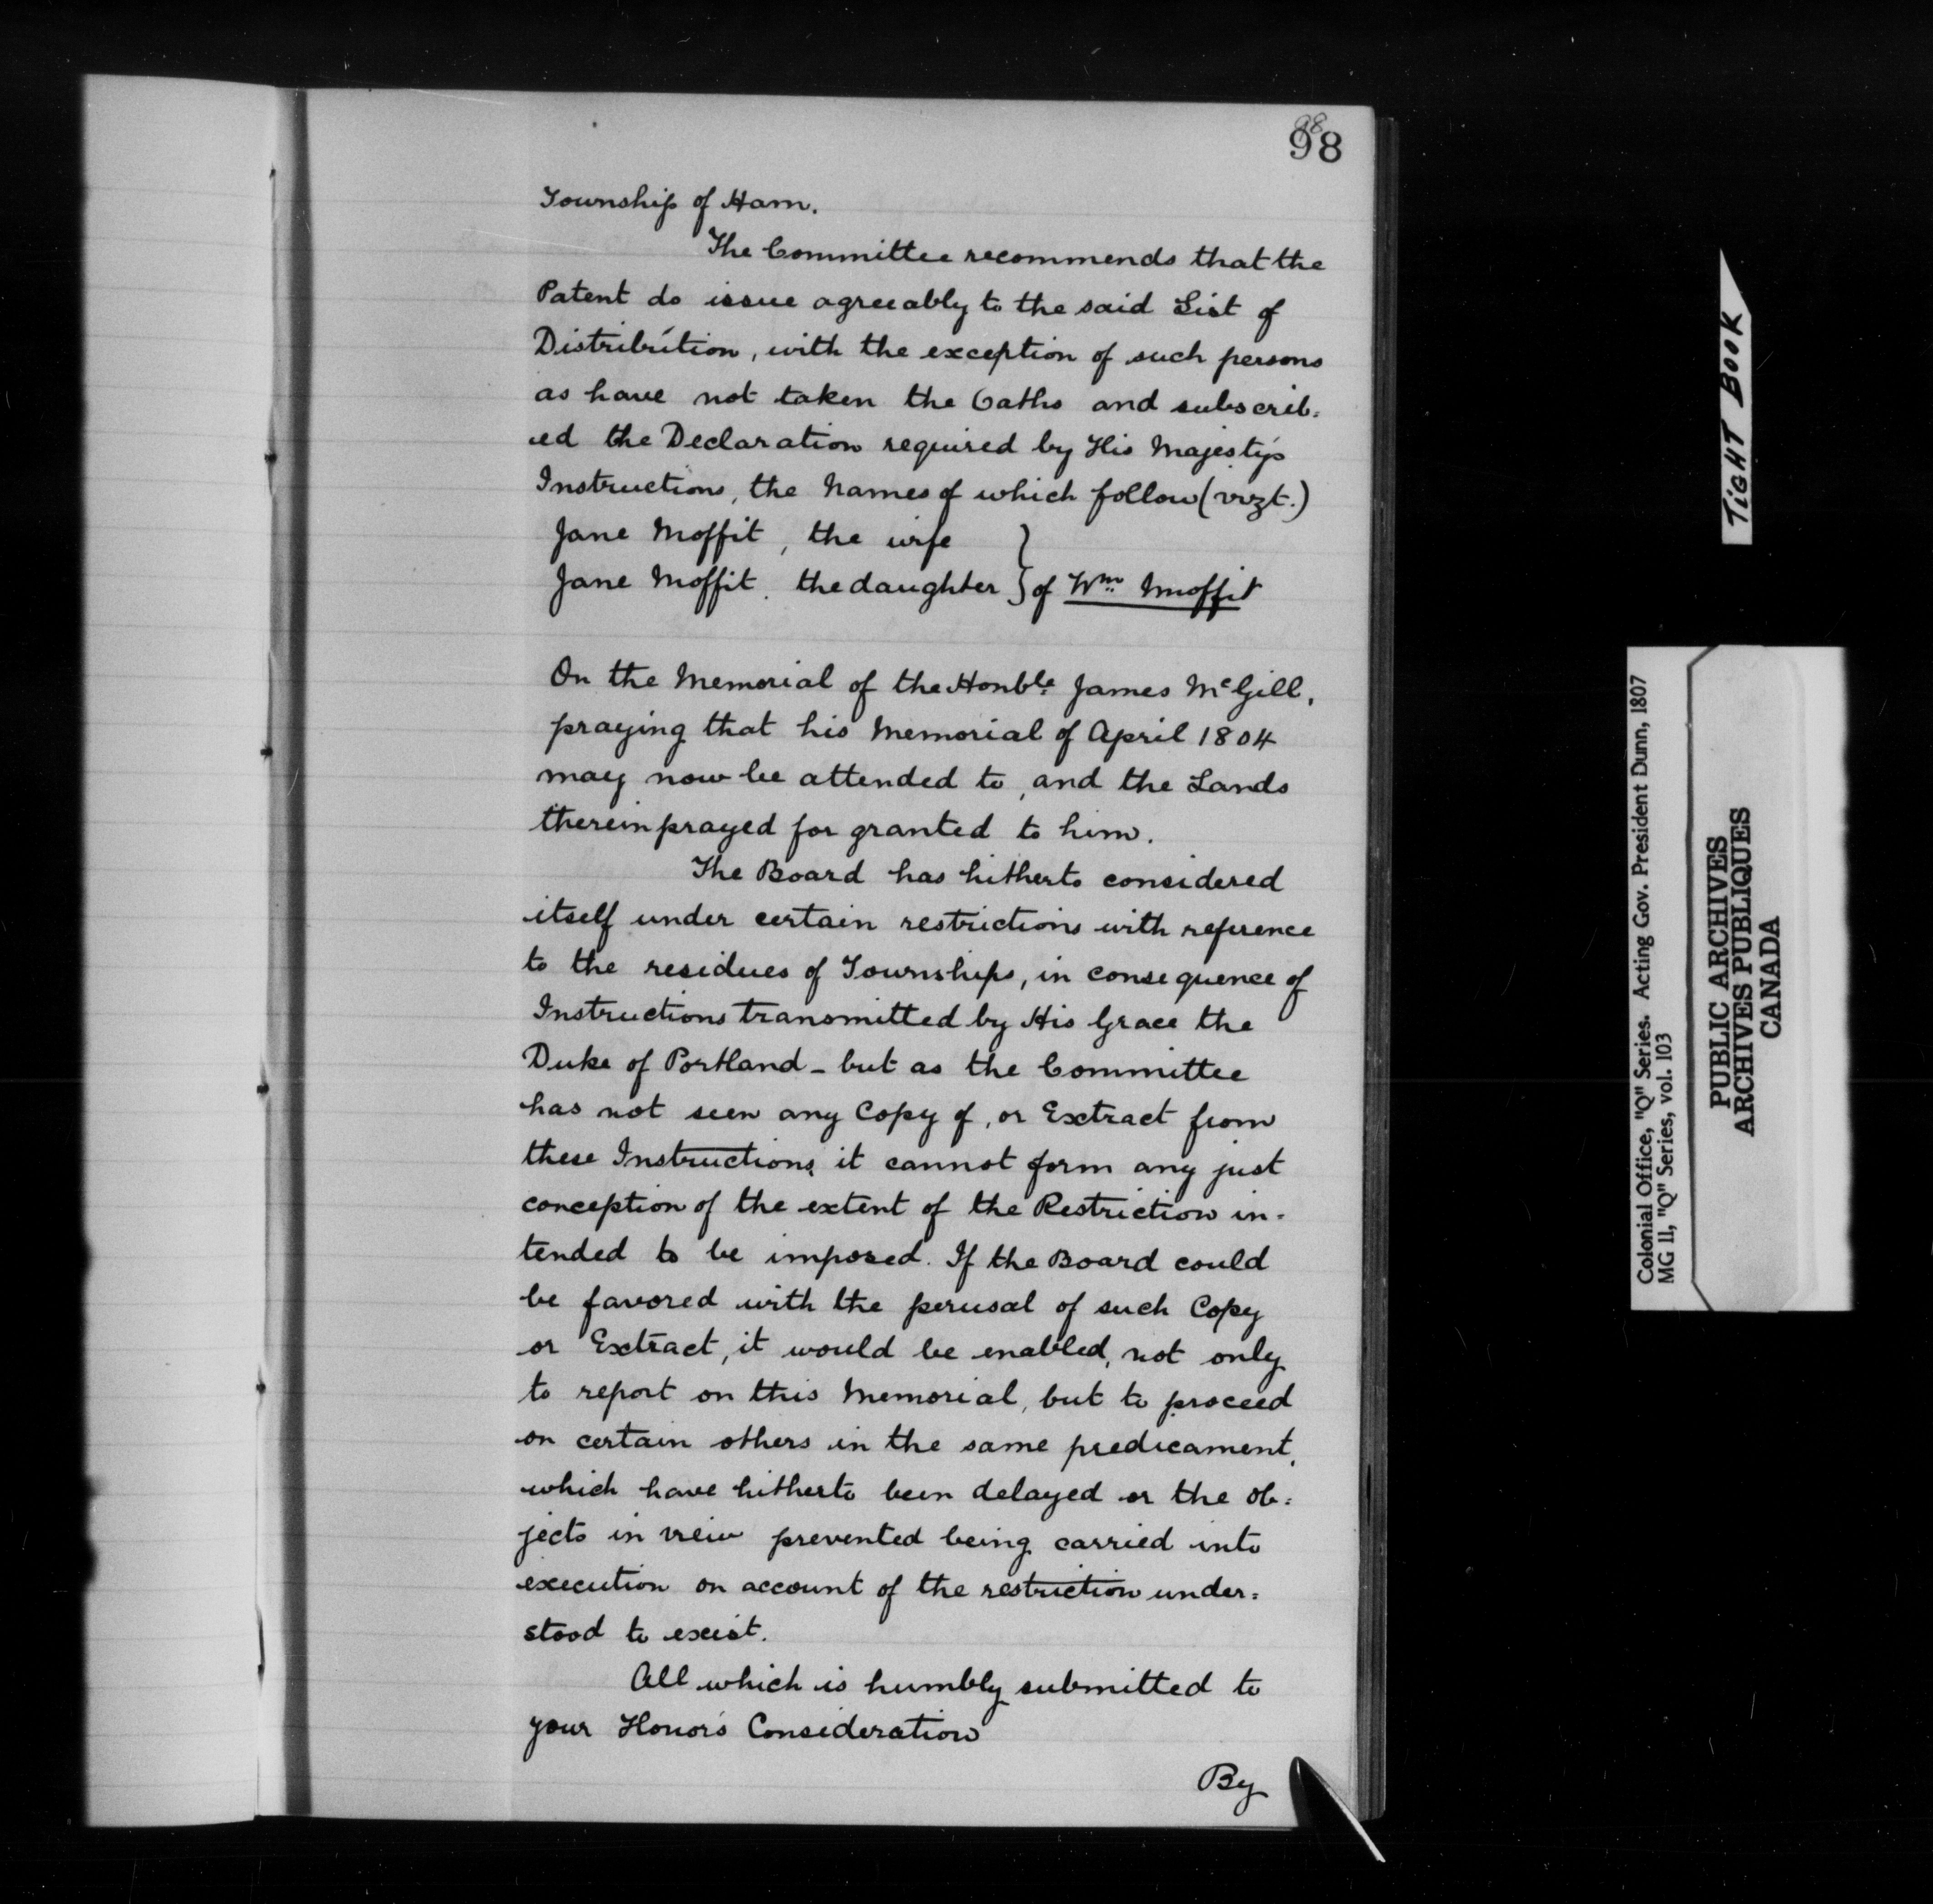 98
98
Township of Ham.
The Committee recommends that the
Patent do issue agreeably to the said List of
Distribution, with the exception of such persons
as have not taken the Oaths and subscrib=
ed the Declaration required by His Majesty's
Instructions, the Names of which follow (vizt.)
Jane Moffit, the wife
Jane Moffit. the daughter } of Wm. Moffit
On the Memorial of the Honble. James McGill,
praying that his Memorial of April 1804
may now be attended to, and the Lands
therein prayed for granted to him.
The Board has hitherto considered
itself under certain restrictions with reference
to the residues of Townships, in consequence of
Instructions transmitted by His Grace the
Duke of Portland - but as the Committee
has not seen any Copy of, or Extract from
these Instructions, it cannot form any just
conception of the extent of the Restriction in-
tended to be imposed. If the Board could
be favored with the perusal of such Copy
or Extract, it would be enabled, not only
to report on this Memorial, but to proceed
on certain others in the same predicament,
which have hitherto been delayed or the ob=
jects in view prevented being carried into
execution on account of the restriction under=
stood to exist.
All which is humbly submitted to
your Honor's Consideration
By
TIGHT BOOK
Colonial Office, "Q" Series. Acting Gov. President Dunn, 1807
MG 11, "Q" Series, vol. 103
PUBLIC ARCHIVES
ARCHIVES PUBLIQUES
CANADA